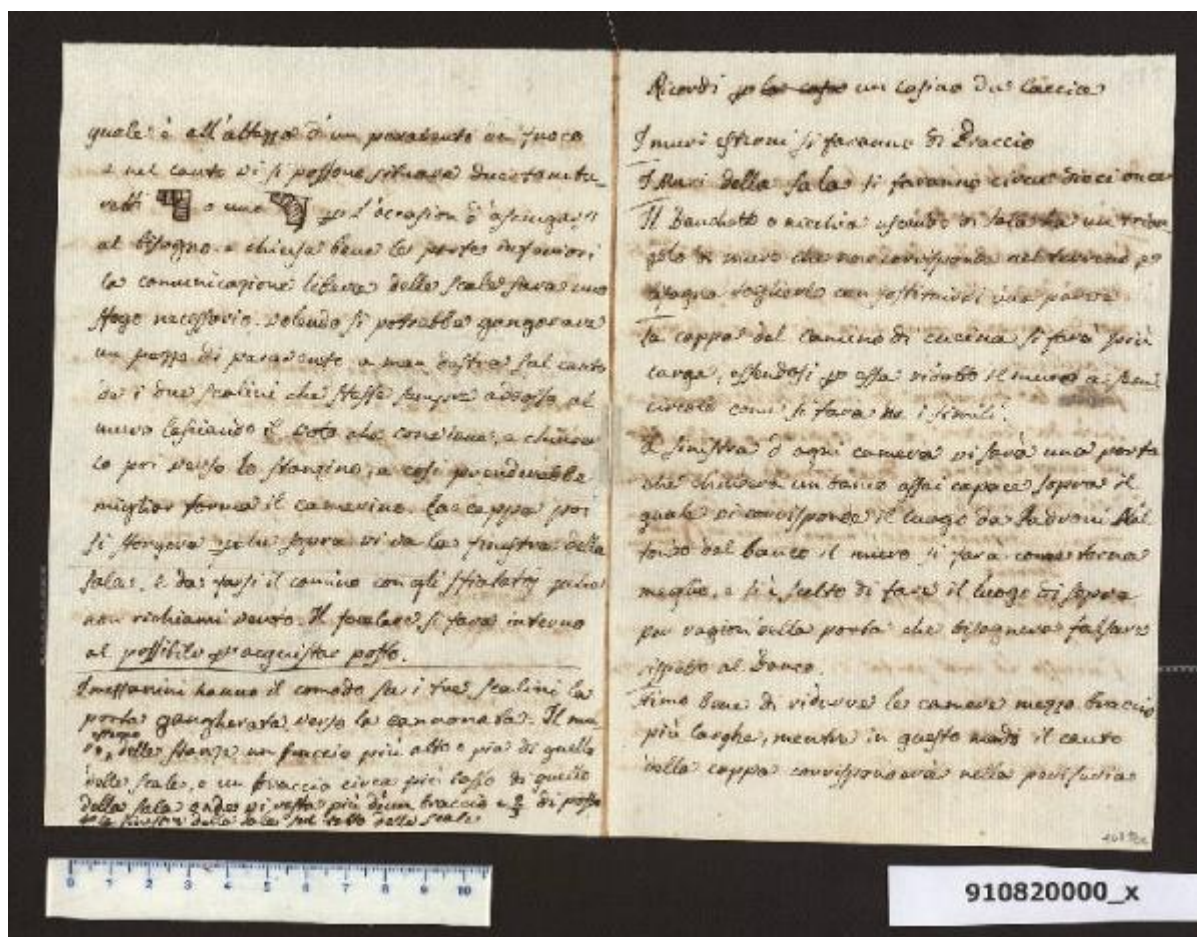 quale è all'altezza d'un paravento da fuoco
e nel canto vi si possono situare due
o uno per l'occasion d'asciugarsi
al bisogno. e chiusa bene le porte inferiori
la comunicazione libera delle scale sarà uno
sfogo necessario. volendo si potrebbe gangerare
un pezzo di paravento a man destra sul canto
de i due scalini che stasse sempre adosso al
muro lasciando il voto che conviene, e chiuso
lo poi verso lo stanzino, e così prenderebbe
miglior forma il camerino. La cappa poi
si per sopra vi va la finestra della
sala. è da farsi il camino con gli sfialatoj
non richiami vento. Il focolare si farà interno
al possibile per acquistar posto.
I mezzanini hanno il comodo su i tre scalini la
porta gangherata verso la cannonata. Il mu
ro esterno delle stanze un braccio più alto e più di quello
delle scale, e un braccio circa più basso di quello
della sala onde vi resta più d'un braccio e 2/3 di posto
la finestra della sala sul tetto delle scale
Ricordi per la casa un casino di Caccia
I muri esterni si faranno di Braccio
I Muri della sala si faranno circa dieci once
Il Banchetto o nicchia uscendo di sala ha un trian
golo di muro che non corrisponde nel terreno
bisogna toglierlo con sostituirvi una parete
La cappa del camino di cucina si farà più
larga, essendosi per essa ridotto il muro a semi
circolo come si farà ne i simili.
A sinistra d'ogni camera vi sarà una porta
che chiuderà un banco assai capace sopra il
quale vi corrisponde il luogo da Padroni
del banco il muro si farà come torna
meglio, e si è scelto di fare il luogo di sopra
per ragion della porta che bisognava falsare
rispetto al Banco.
Stimo bene di ridurre le camere mezzo braccio
più larghe, mentre in questo modo il canto
della cappa corrisponderà nella
0 1 2 3 4 5 6 7 8 9 10
910820000_x